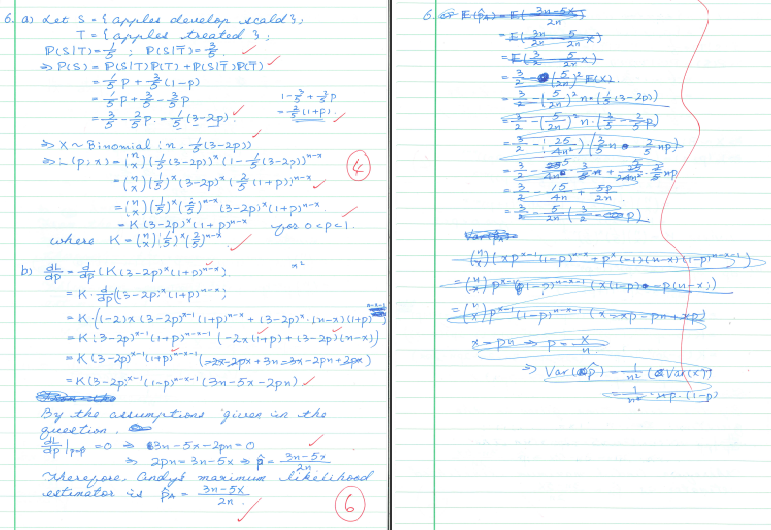 6. a) Let S = {apples develop scald};
T = {apples treated};
P(S|T) = 1/5 ; P(S|T̄) = 3/5.
⇒ P(S) = P(S|T)P(T) + P(S|T̄)P(T̄)
= 1/5 p + 3/5 (1-p)
= 1/5 p + 3/5 - 3/5 p
= 3/5 - 2/5 p = 1/5 (3-2p)
1 - 3/5 + 2/5 p
= 2/5 (1+p).
⇒ X ~ Binomial (n, 1/5 (3-2p))
⇒ L(p; x) = (n x) (1/5 (3-2p))^x (1 - 1/5 (3-2p))^(n-x)
= (n x) (1/5)^x (3-2p)^x (2/5 (1+p))^(n-x)
= (n x) (1/5)^x (2/5)^(n-x) (3-2p)^x (1+p)^(n-x)
= K (3-2p)^x (1+p)^(n-x) for 0<p<1.
where K = (n x) (1/5)^x (2/5)^(n-x)
4
b) dL/dp = d/dp (K (3-2p)^x (1+p)^(n-x))
= K · d/dp ((3-2p)^x (1+p)^(n-x))
= K · ((-2)x (3-2p)^(x-1) (1+p)^(n-x) + (3-2p)^x · (n-x)(1+p)^(n-x-1))
= K (3-2p)^(x-1) (1+p)^(n-x-1) (-2x(1+p) + (3-2p)(n-x))
= K (3-2p)^(x-1) (1+p)^(n-x-1) (-2x-2px + 3n - 3x - 2pn + 2px)
= K (3-2p)^(x-1) (1-p)^(n-x-1) (3n - 5x - 2pn)
By the assumptions given in the
question.
dL/dp |p=p̂ = 0 ⇒ 3n - 5x - 2pn = 0
⇒ 2pn = 3n - 5x ⇒ p̂ = (3n-5x)/2n
Therefore, Andy's maximum likelihood
estimator is p̂A = (3n-5X)/2n.
6
6. c) E(p̂A) = E((3n-5X)/2n)
= E(3n/2n - 5/2n X)
= E(3/2 - 5/2n X)
= 3/2 - (5/2n)² E(X).
= 3/2 - (5/2n)² n · (1/5 (3-2p))
= 3/2 - (5/2n)² n · (3/5 - 2/5 p)
= 3/2 - (25/4n²) (3/5 n - 2/5 np)
= 3/2 - 15/4n + 5p/2n
(n x) (x p^(x-1) (1-p)^(n-x) + p^x (-1)(n-x)(1-p)^(n-x-1))
= (n x) p^(x-1) (1-p)^(n-x-1) (x(1-p) - p(n-x))
= (n x) p^(x-1) (1-p)^(n-x-1) (x - xp - pn + xp)
x - pn ⇒ p = X/n
⇒ Var(p̂) = 1/n² (Var(X))
= 1/n² · np · (1-p)